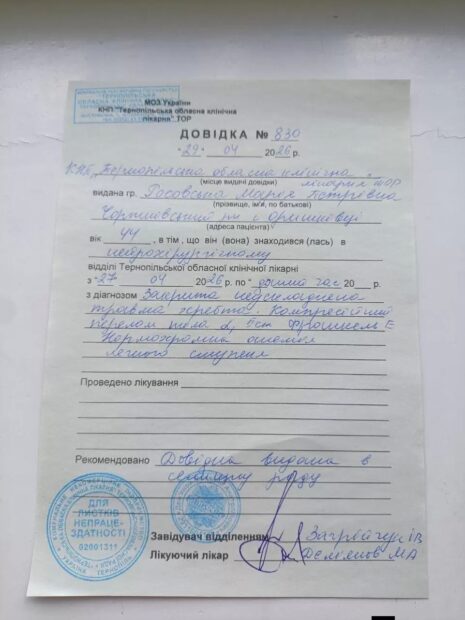 ТЕРНОПІЛЬСЬКА
ОБЛАСНА КЛІНІЧНА
МОЗ України
КНП "Тернопільська обласна клінічна
лікарня" ТОР
ДОВІДКА № 830
"29" 04 2026 р.
КНП "Тернопільська обласна клінічна
(місце видачі довідки) лікарня" ТОР
видана гр. Росовська Марія Петрівна
(прізвище, ім'я, по батькові)
Чортківський с.
(адреса пацієнта)
вік 44, в тім, що він (вона) знаходився (лась) в
нейрохірургічному
відділі Тернопільської обласної клінічної лікарні
з "27" 04 2026 р. по " даний час 20 р.
з діагнозом Закрита неускладнена
травма хребта. Компресійний
перелом тіла
Нормохромна анемія
легкого ступеня
Проведено лікування
Рекомендовано Довідка видана в
ДЛЯ
ЛИСТКІВ
НЕПРАЦЕ-
ЗДАТНОСТІ
02001311
Завідувач відділенням
Лікуючий лікар МА